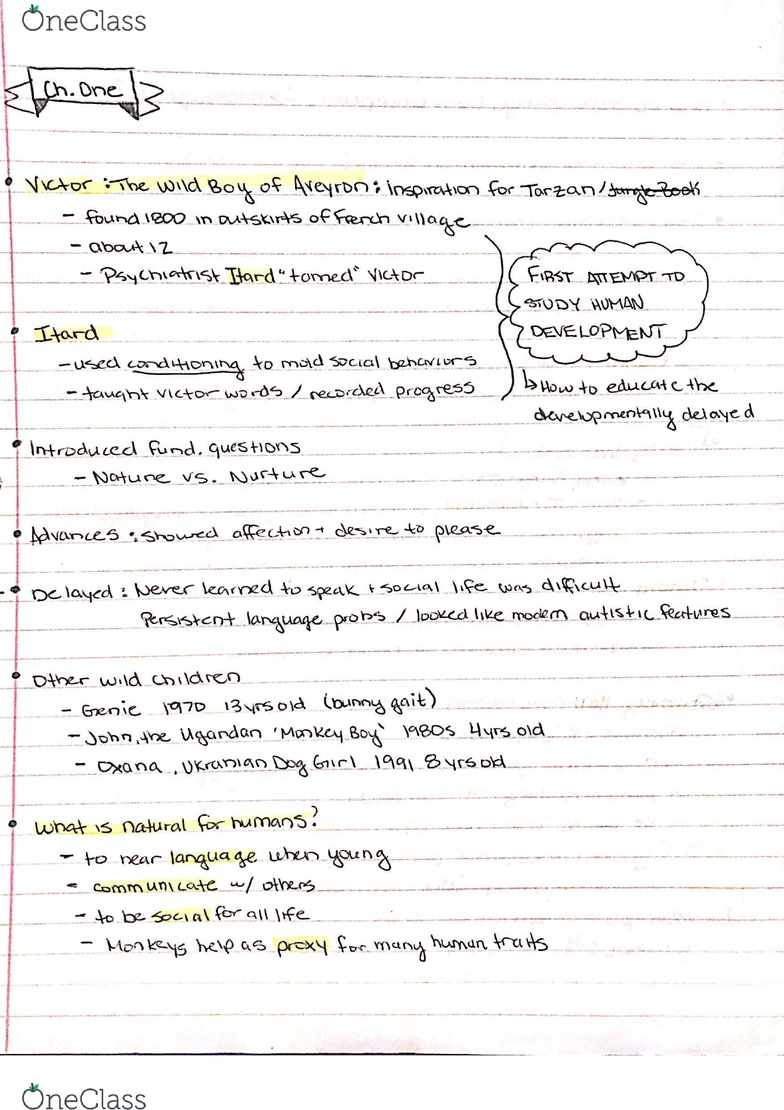 OneClass
Ch. One
Victor : The Wild Boy of Aveyron : inspiration for Tarzan / Jungle Book
- found 1800 in outskirts of French village
- about 12
- Psychiatrist Itard "tamed" Victor
FIRST ATTEMPT TO
STUDY HUMAN
DEVELOPMENT
↳ How to educate the
developmentally delayed
• Itard
- used conditioning to mold social behaviors
- taught victor words / recorded progress
• Introduced fund. questions
- Nature vs. Nurture
• Advances : showed affection + desire to please
• Delayed : Never learned to speak + social life was difficult
Persistent language probs / looked like modern autistic features
• Other wild children
- Genie 1970 13 yrs old (bunny gait)
- John, the Ugandan 'Monkey Boy' 1980s 4 yrs old
- Oxana, Ukranian Dog Girl 1991 8 yrs old
• What is natural for humans?
- to hear language when young
- communicate w/ others
- to be social for all life
- Monkeys help as proxy for many human traits
OneClass